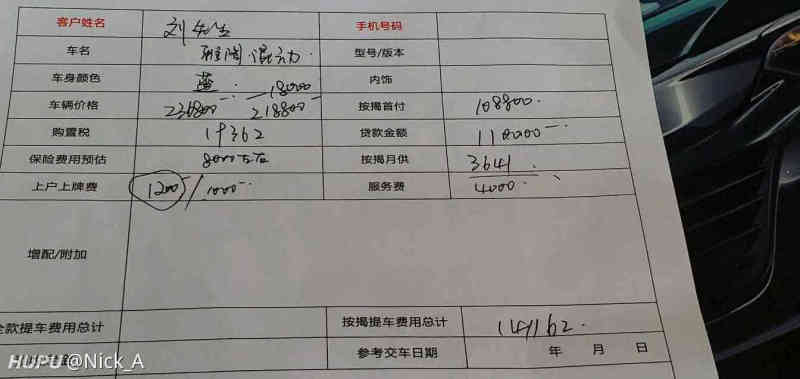 客户姓名 刘先生 手机号码
车名 雅阁 锐·混动 型号/版本
车身颜色 蓝 -18000 内饰
车辆价格 236800 218800 按揭首付 108800
购置税 19362 贷款金额 110000
保险费用预估 8000左右 按揭月供 3641
上户上牌费 1200 / 1000 服务费 4000
增配/附加
全款提车费用总计 按揭提车费用总计 141162
参考交车日期 年 月 日
HUPU @Nick_A